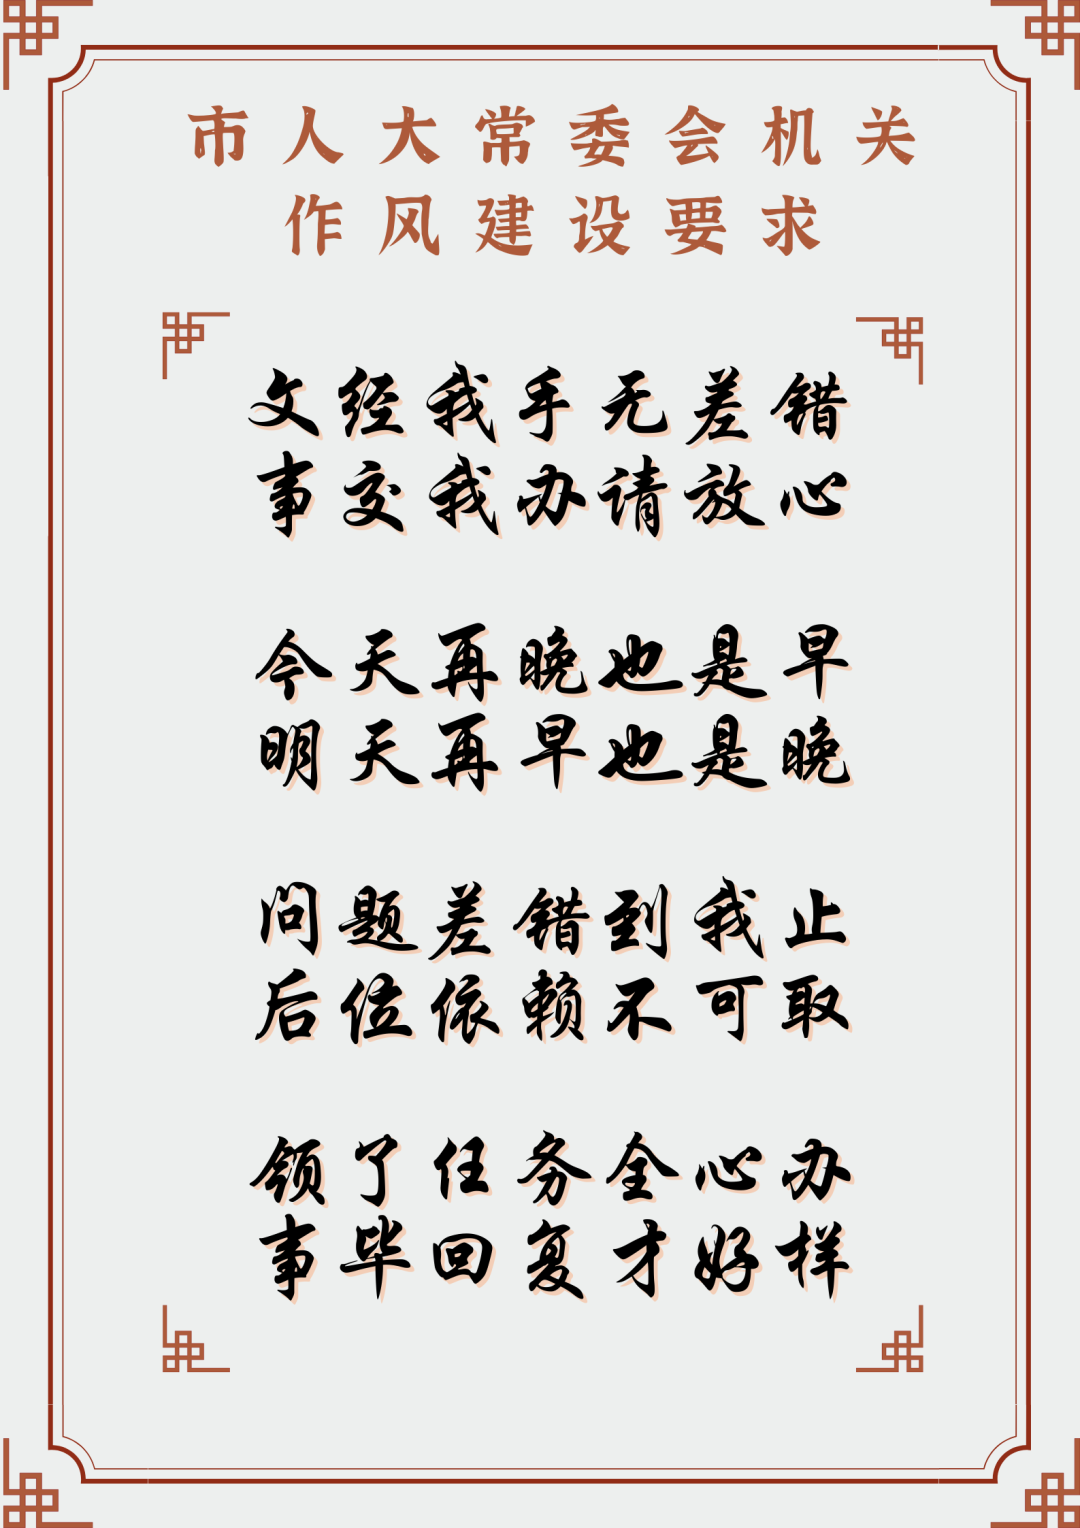 市人大常委会机关
作风建设要求
文经我手无差错
事交我办请放心
今天再晚也是早
明天再早也是晚
问题差错到我止
后位依赖不可取
领了任务全心办
事毕回复才好样